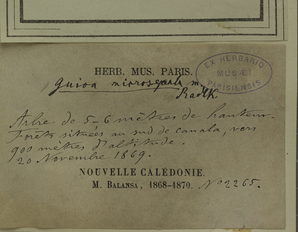 HERB. MUS. PARIS.
EX HERBARIO
MUSEI
PARISIENSIS
Guioa microsepala
Radlk
Arbre de 5-6 mètres de hauteur.
Forêts situées au sud de Canala, vers
900 mètres d'altitude.
20 Novembre 1869.
NOUVELLE CALÉDONIE.
M. BALANSA, 1868-1870. N° 2265.